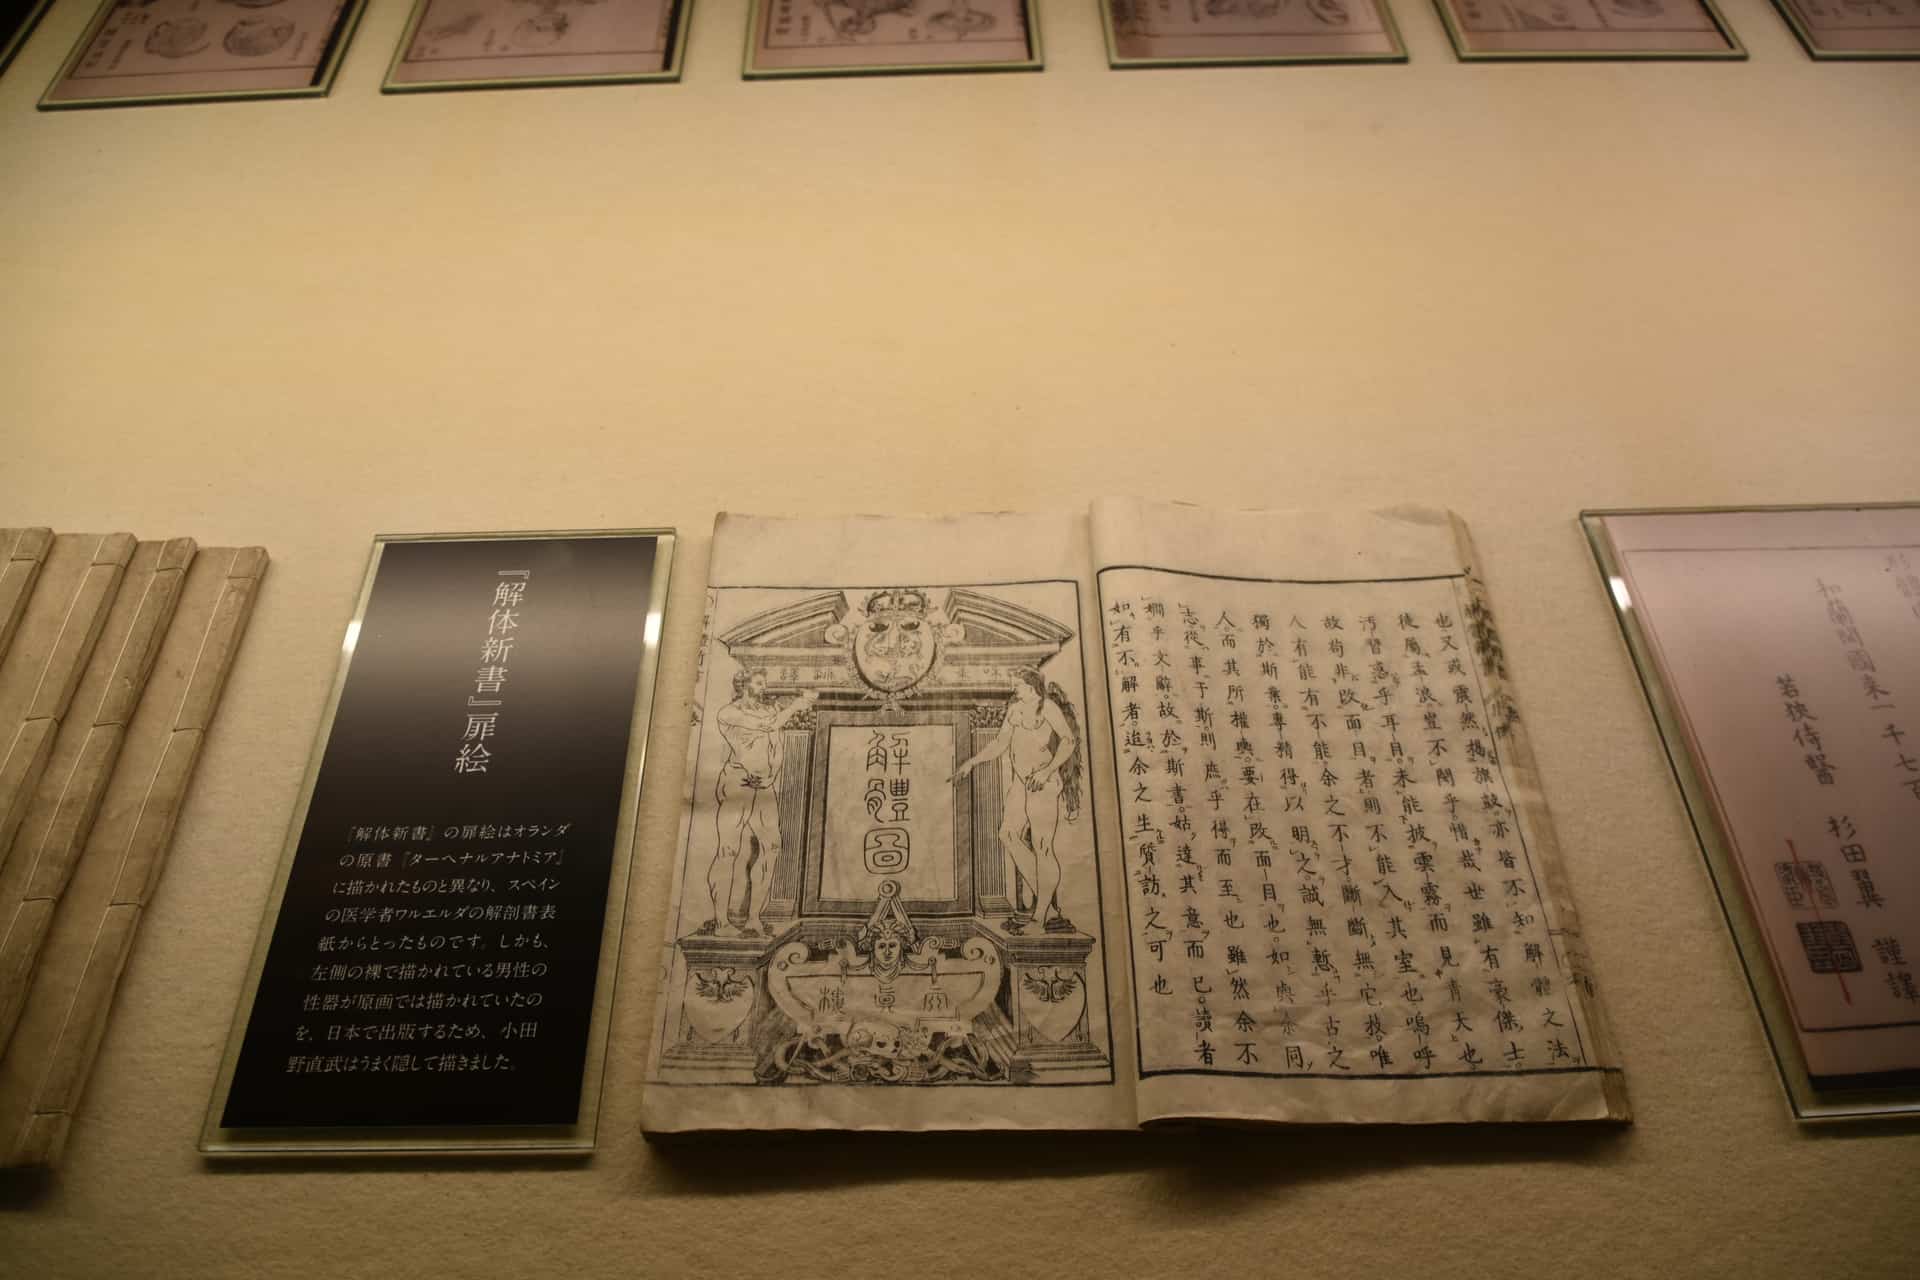 『解体新書』扉絵
『解体新書』の扉絵はオランダ
の原書『ターヘナルアナトミア』
に描かれたものと異なり、スペイン
の医学者ワルエルダの解剖書表
紙からとったものです。しかも、
左側の裸で描かれている男性の
性器が原画では描かれていたの
を、日本で出版するため、小田
野直武はうまく隠して描きました。
解體圖
也又或震然揭旗鼓亦皆不知解體之法
徒屬孟浪豈不閔乎惜哉世雖有豪傑士
汚習惑乎耳目未能披雲霧而見青天也
故苟非改面目者則不能入其室也嗚呼
人有能有不能余之不才斷斷無它技唯
獨於斯業專精得以明之誠無慙乎古之
人而其所權輿要在改面目也如與余同
志從事于斯則庶乎得而至也雖然余不
嫺乎文辭故於斯書姑達其意而已讀者
如有不解者迨余之生質訪之可也
和蘭開國來一千七百
若狹侍醫 杉田翼 謹譯